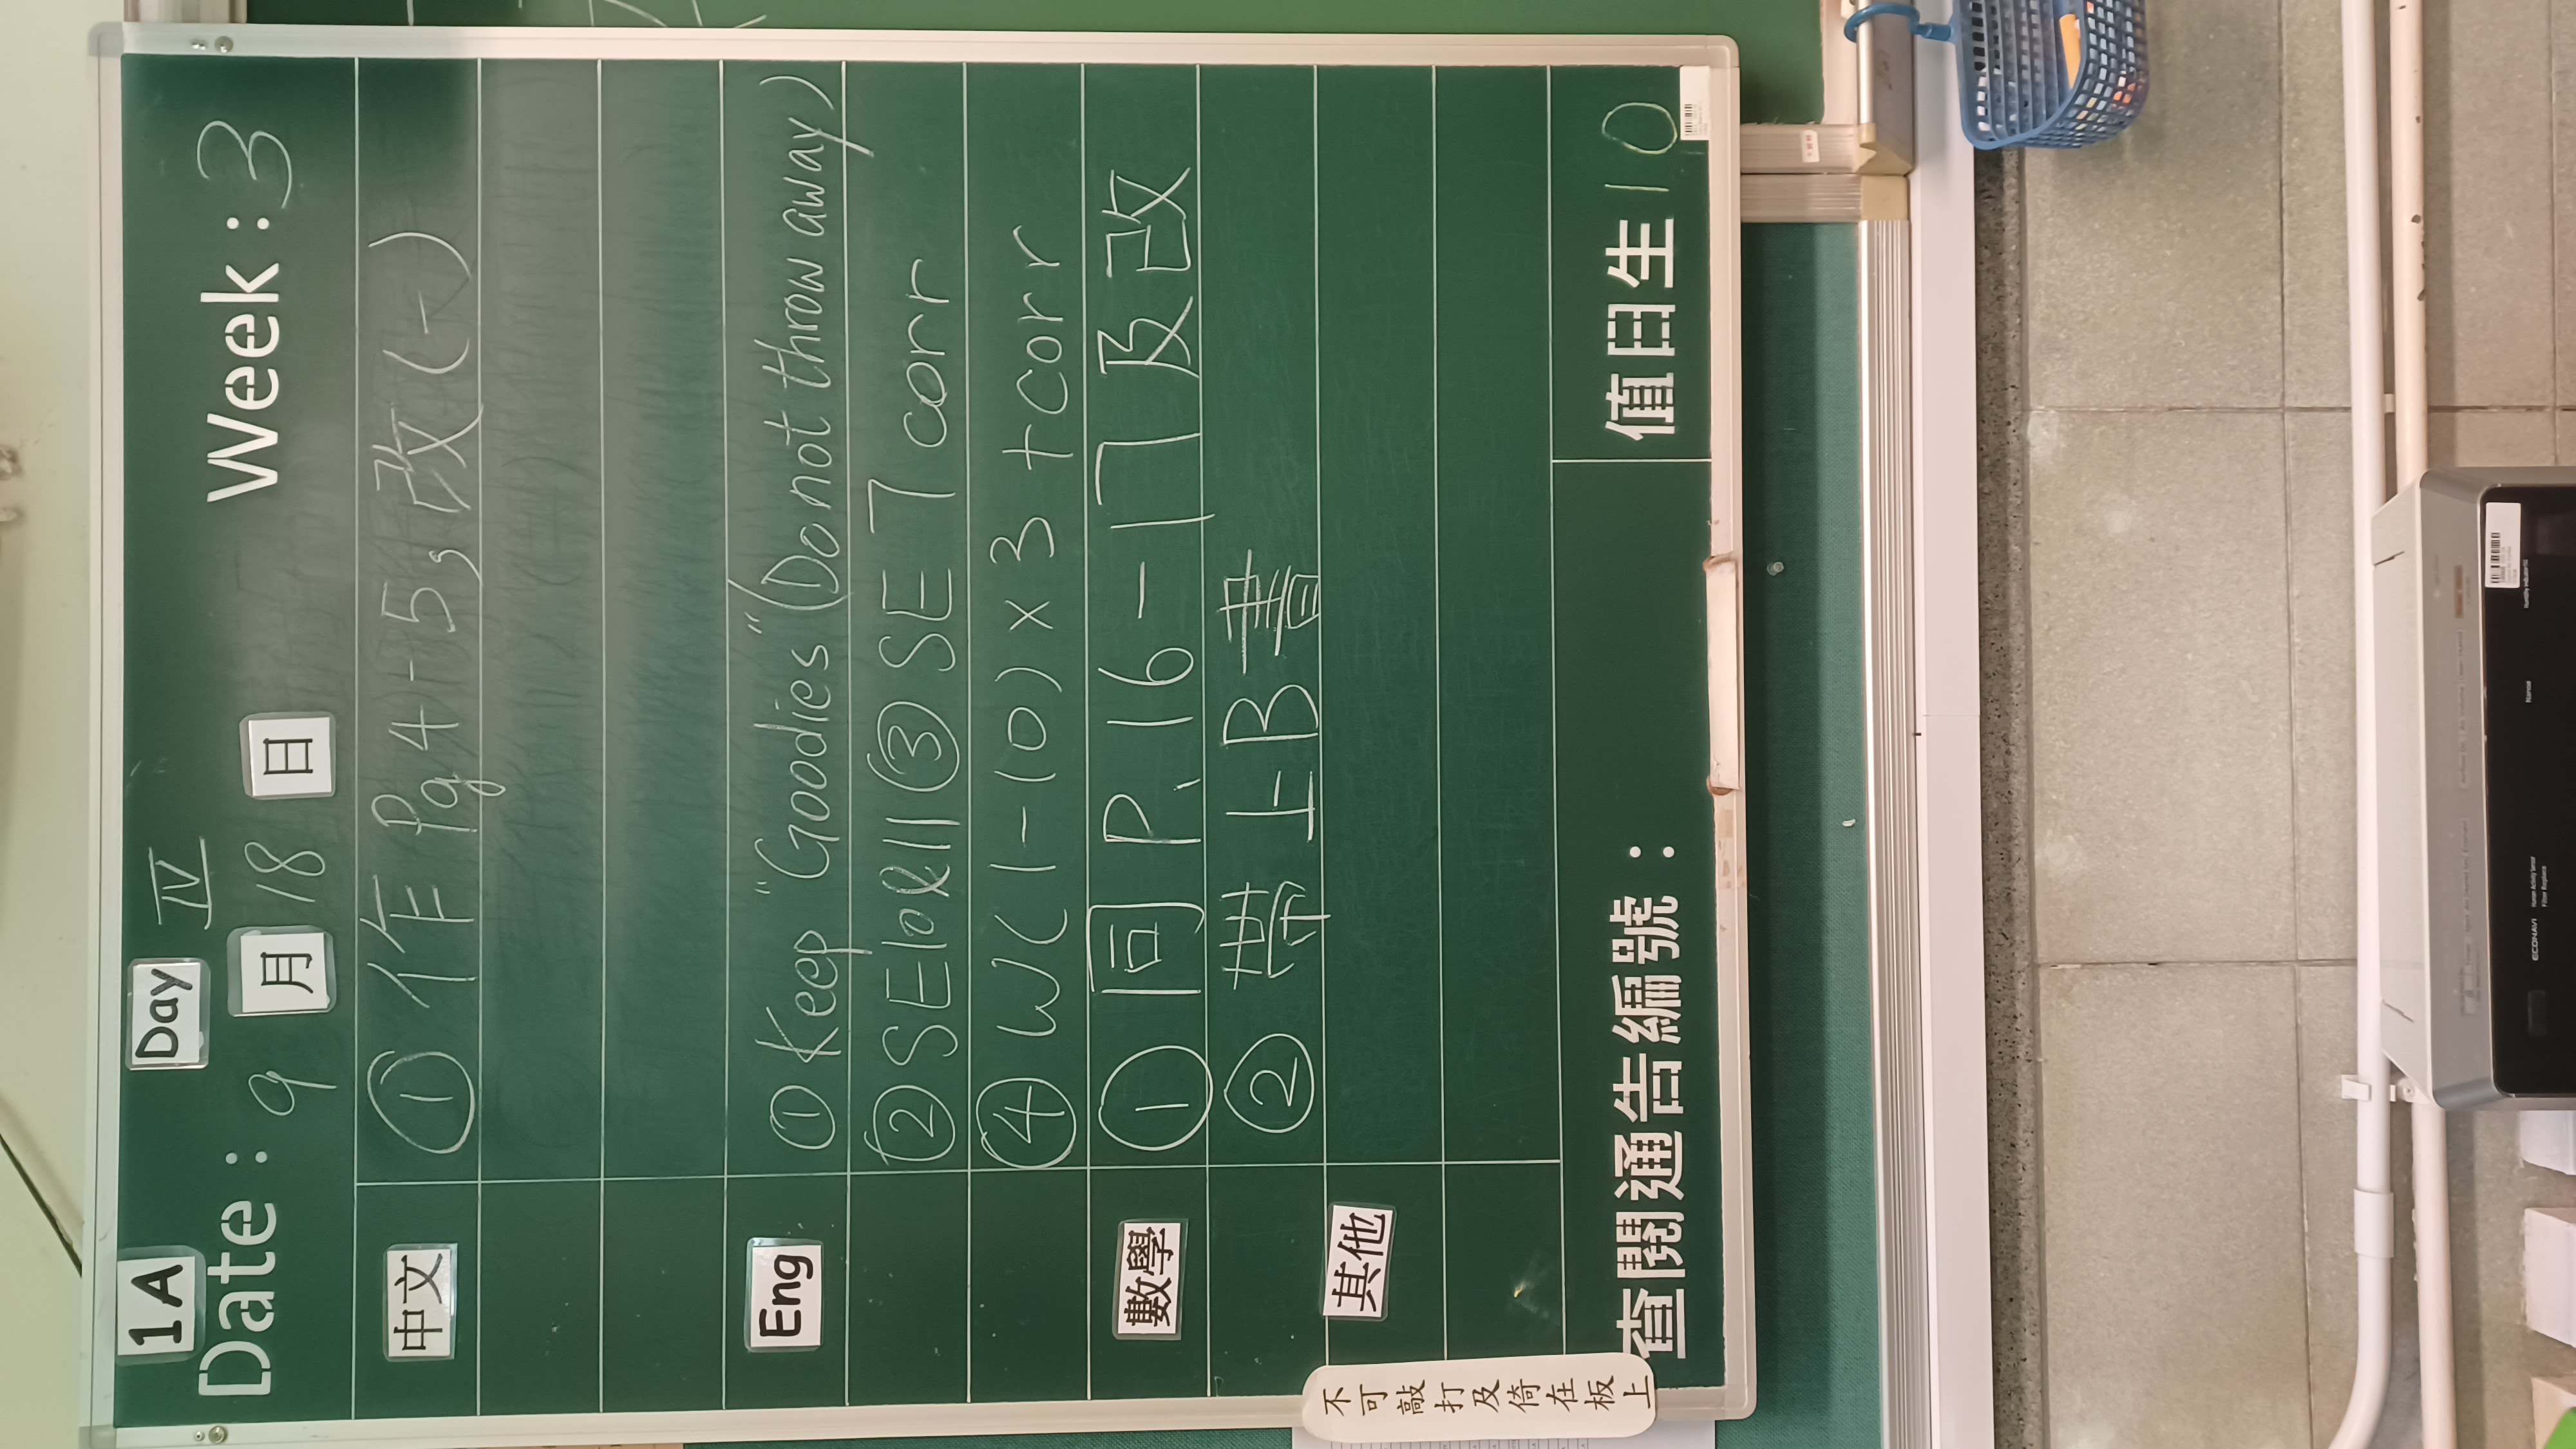 1A Day IV
Date : 9 月 18 日 Week : 3
中文 ① 作 Pg 4-5, 改(一)
Eng ① Keep "Goodies" (Do not throw away)
② SE10&11 ③ SE 7 corr
④ W(1-10) x 3 + corr
數學 ① 回 P.16-17 及改
② 帶上B書
其他
查閱通告編號 : 值日生 10
不可敲打及倚在板上
ECONAVI
Nanoe